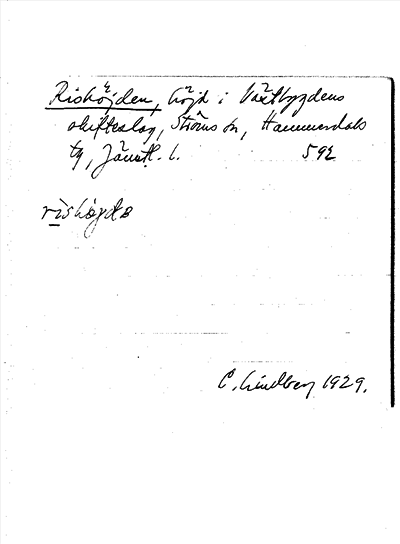 Rishöjden, höjd i Växtbygdens
skifteslag, Ströms sn, Hammerdals
tg, Jämtl. l. 592
rishøgda
C. Lindberg 1929.